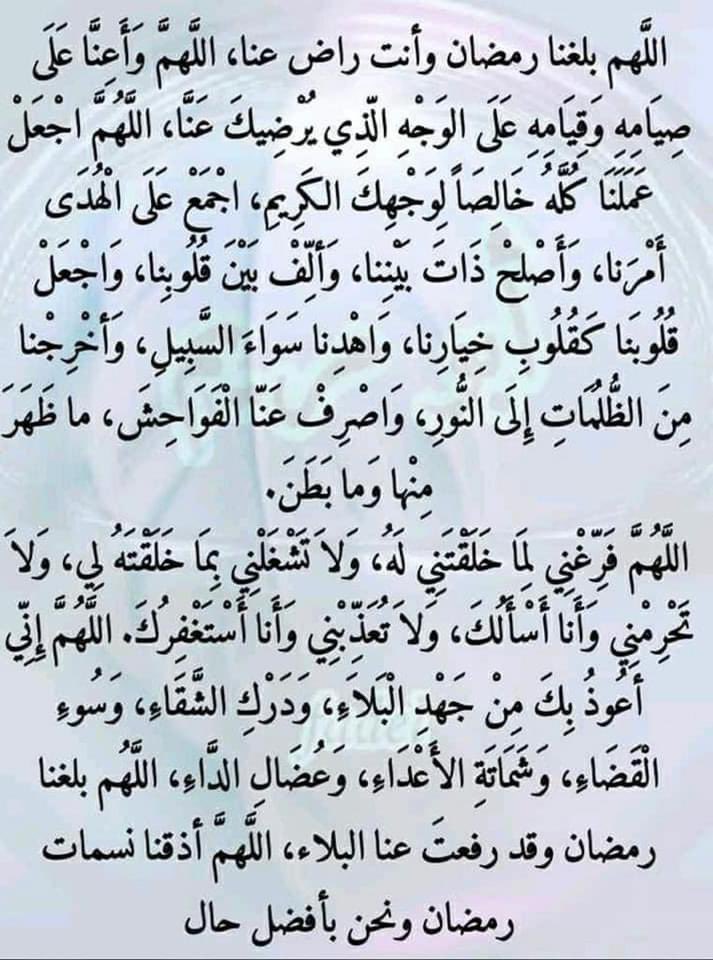 اللَّهم بلغنا رمضان وأنت راض عنا، اللَّهمَّ وَأَعِنَّا عَلَى
صِيَامِهِ وَقِيَامِهِ عَلَى الوَجْهِ الّذِي يُرْضِيكَ عَنَّا، اللَّهُمَّ اجْعَلْ
عَمَلَنَا كُلَّهُ خَالِصَاً لِوَجْهِكَ الكَرِيمِ، اجْمَعْ عَلَى الْهُدَى
أَمْرَنا، وَأَصْلِحْ ذَاتَ بَيْنِنا، وَأَلِّفْ بَيْنَ قُلُوبِنا، وَاجْعَلْ
قُلُوبَنا كَقُلُوبِ خِيَارِنا، وَاهْدِنا سَوَاءَ السَّبِيلِ، وَأَخْرِجْنا
مِنَ الظُّلُمَاتِ إِلَى النُّورِ، وَاصْرِفْ عَنّا الْفَوَاحِشَ، ما ظَهَرَ
مِنْها وَما بَطَنَ.
اللَّهُمَّ فَرِّغْنِي لِمَا خَلَقْتَنِي لَهُ، وَلاَ تَشْغَلْنِي بِمَا خَلَقْتَهُ لِي، وَلاَ
تَحْرِمْنِي وَأَنا أَسْأَلُكَ، وَلاَ تُعَذِّبْنِي وَأَنا أَسْتَغْفِرُكَ. اللَّهُمَّ إِنِّي
أَعُوذُ بِكَ مِنْ جَهْدِ الْبَلاَءِ، وَدَرْكِ الشَّقَاءِ، وَسُوءِ
الْقَضَاءِ، وَشَمَاتَةِ الأَعْدَاءِ، وَعُضَالِ الدَّاءِ، اللَّهُم بلغنا
رمضان وقد رفعتَ عنا البلاء، اللَّهمَّ أذقنا نسمات
رمضان ونحن بأفضل حال